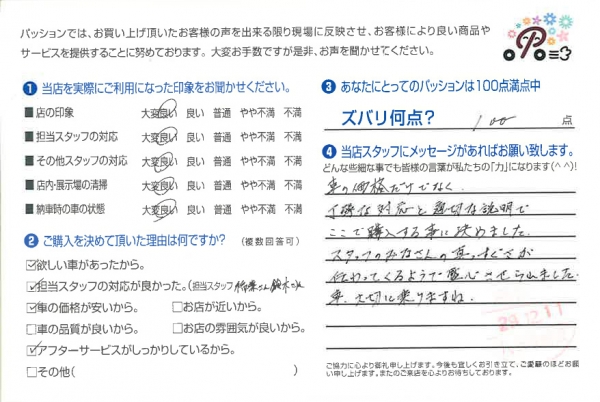 パッションでは、お買い上げ頂いたお客様の声を出来る限り現場に反映させ、お客様により良い商品や
サービスを提供することに努めております。大変お手数ですが是非、お声を聞かせてください。
❶ 当店を実際にご利用になった印象をお聞かせください。
■ 店の印象 大変良い 良い 普通 やや不満 不満
■ 担当スタッフの対応 大変良い 良い 普通 やや不満 不満
■ その他スタッフの対応 大変良い 良い 普通 やや不満 不満
■ 店内・展示場の清掃 大変良い 良い 普通 やや不満 不満
■ 納車時の車の状態 大変良い 良い 普通 やや不満 不満
❷ ご購入を決めて頂いた理由は何ですか? (複数回答可)
☑欲しい車があったから。
☑担当スタッフの対応が良かった。(担当スタッフ 鈴木さん
☑車の価格が安いから。 □お店が近いから。
□車の品質が良いから □お店の雰囲気が良いから。
☑アフターサービスがしっかりしているから。
□その他( )
❸ あなたにとってのパッションは100点満点中
ズバリ何点? 100 点
❹ 当店スタッフにメッセージがあればお願い致します。
どんな些細な事でも皆様の言葉が私たちの「力」になります(^^)!
車の価格だけでなく、
丁寧な対応と適切な説明で
ここで購入する事に決めました。
スタッフのみなさんの真っすぐさが
伝わってくるようで安心させられました。
車、大切に乗りますね。
29.12.11
ご協力に心より御礼申し上げます。今後も宜しくお引き立て、ご愛顧のほどお願い申し上げます。またのご来店を心よりお待ちしております。